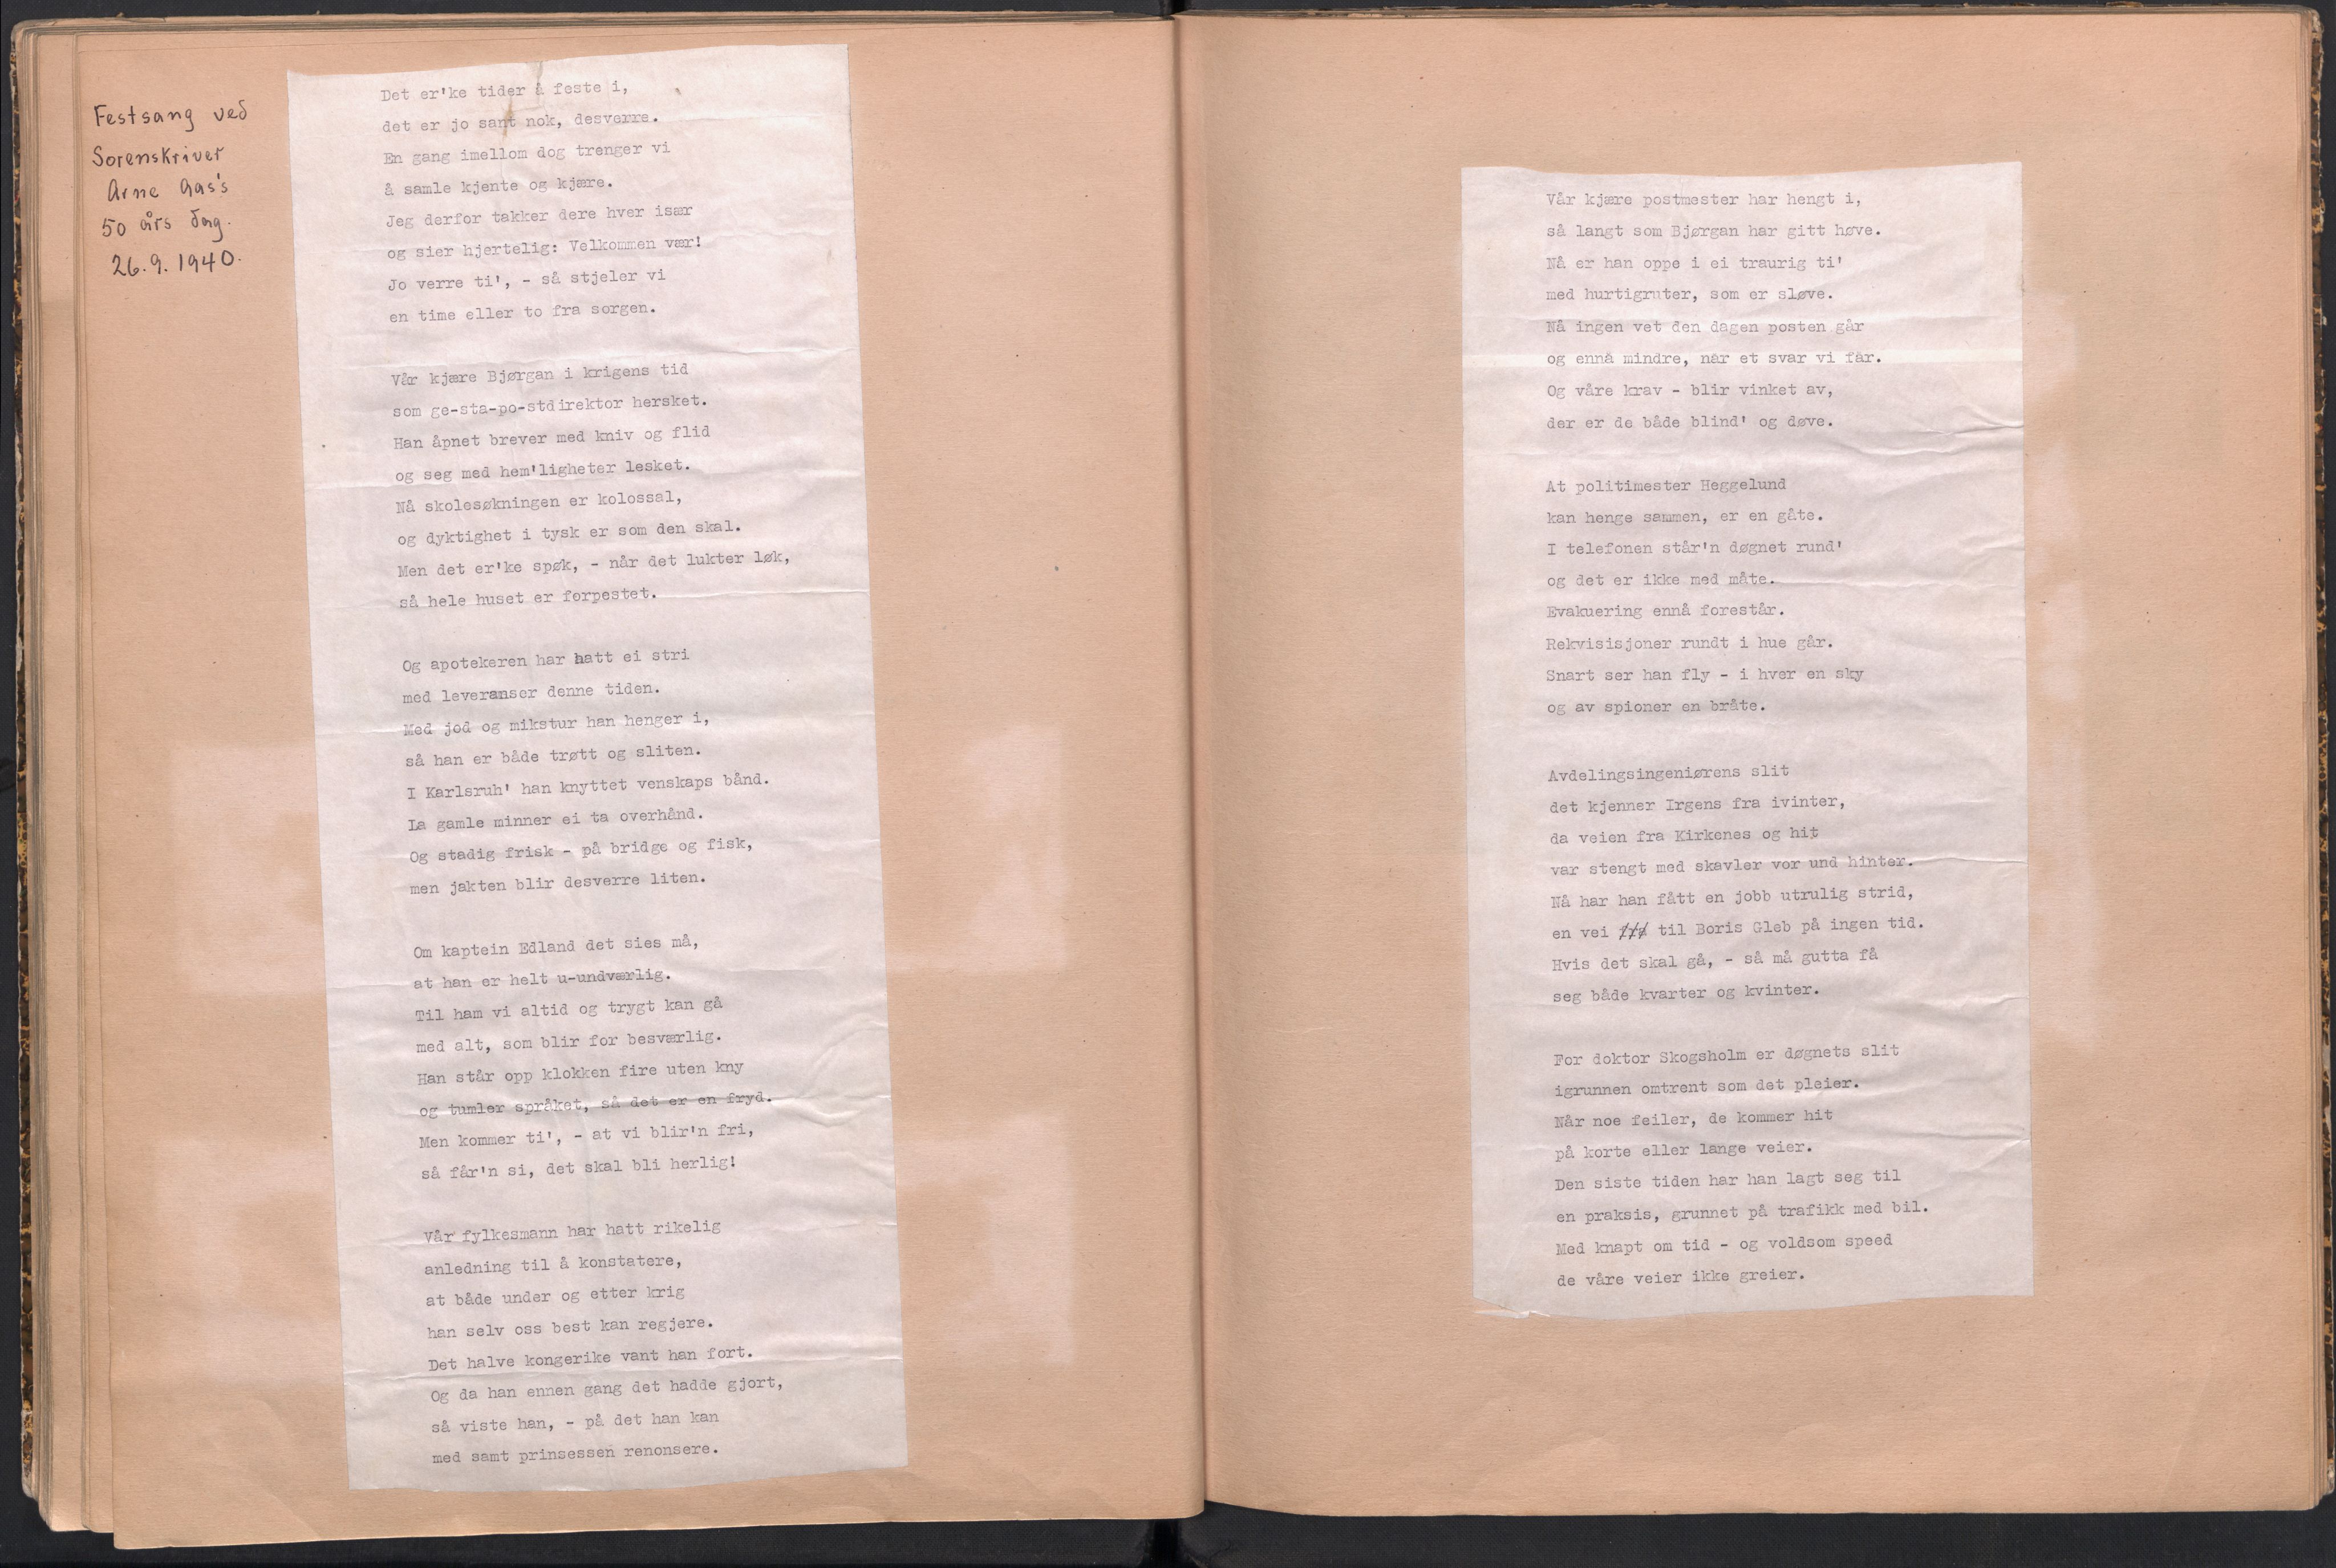 Festsang ved
Sorenskriver
Arne Aas's
50 års dag.
26.9.1940.
Det er'ke tider å feste i,
det er jo sant nok, desverre.
En gang imellom dog trenger vi
å samle kjente og kjære.
Jeg derfor takker dere hver især
og sier hjertelig: Velkommen vær!
Jo verre ti', - så stjeler vi
en time eller to fra sorgen.
Vår kjære Bjørgan i krigens tid
som ge-sta-po-stdirektor hersket.
Han åpnet brever med kniv og flid
og seg med hem'ligheter lesket.
Nå skolesøkningen er kolossal,
og dyktighet i tysk er som den skal.
Men det er'ke spøk, - når det lukter løk,
så hele huset er forpestet.
Og apotekeren har hatt ei stri
med leveranser denne tiden.
Med jod og mikstur han henger i,
så han er både trøtt og sliten.
I Karlsruh' han knyttet venskaps bånd.
La gamle minner ei ta overhånd.
Og stadig frisk - på bridge og fisk,
men jakten blir desverre liten.
Om kaptein Edland det sies må,
at han er helt u-undværlig.
Til ham vi altid og trygt kan gå
med alt, som blir for besværlig.
Han står opp klokken fire uten kny
og tumler språket, så det er en fryd.
Men kommer ti', - at vi blir'n fri,
så får'n si, det skal bli herlig!
Vår fylkesmann har hatt rikelig
anledning til å konstatere,
at både under og etter krig
han selv oss best kan regjere.
Det halve kongerike vant han fort.
Og da han ennen gang det hadde gjort,
så viste han, - på det han kan
med samt prinsessen renonsere.
Vår kjære postmester har hengt i,
så langt som Bjørgan har gitt høve.
Nå er han oppe i ei traurig ti'
med hurtigruter, som er sløve.
Nå ingen vet den dagen posten går
og ennå mindre, når et svar vi får.
Og våre krav - blir vinket av,
der er de både blind' og døve.
At politimester Heggelund
kan henge sammen, er en gåte.
I telefonen står'n døgnet rund'
og det er ikke med måte.
Evakuering ennå forestår.
Rekvisisjoner rundt i hue går.
Snart ser han fly - i hver en sky
og av spioner en bråte.
Avdelingsingeniørens slit
det kjenner Irgens fra ivinter,
da veien fra Kirkenes og hit
var stengt med skavler vor und hinter.
Nå har han fått en jobb utrulig strid,
en vei til Boris Gleb på ingen tid.
Hvis det skal gå, - så må gutta få
seg både kvarter og kvinter.
For doktor Skogsholm er døgnets slit
igrunnen omtrent som det pleier.
Når noe feiler, de kommer hit
på korte eller lange veier.
Den siste tiden har han lagt seg til
en praksis, grunnet på trafikk med bil.
Med knapt om tid - og voldsom speed
de våre veier ikke greier.